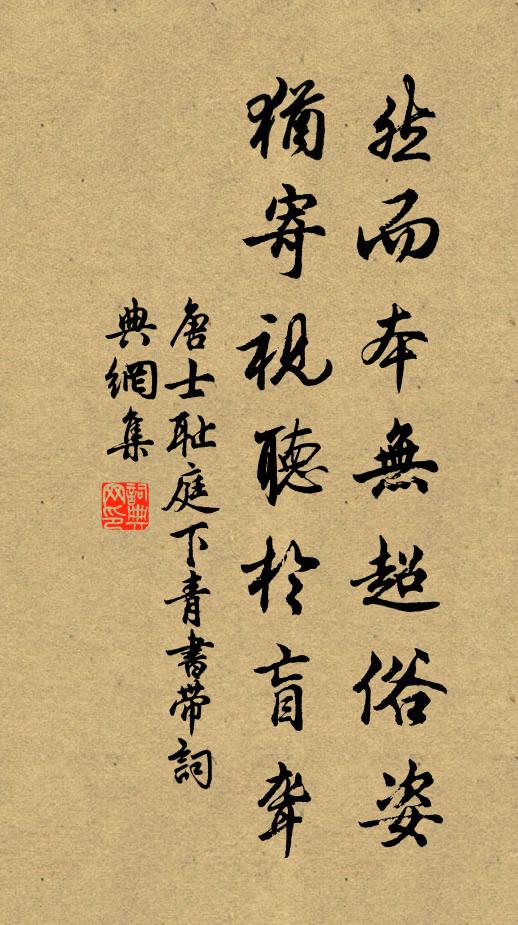 然而本無超俗姿
猶寄視聽於盲聾
唐士耻庭下青書帶詞
典網集
詞典網印